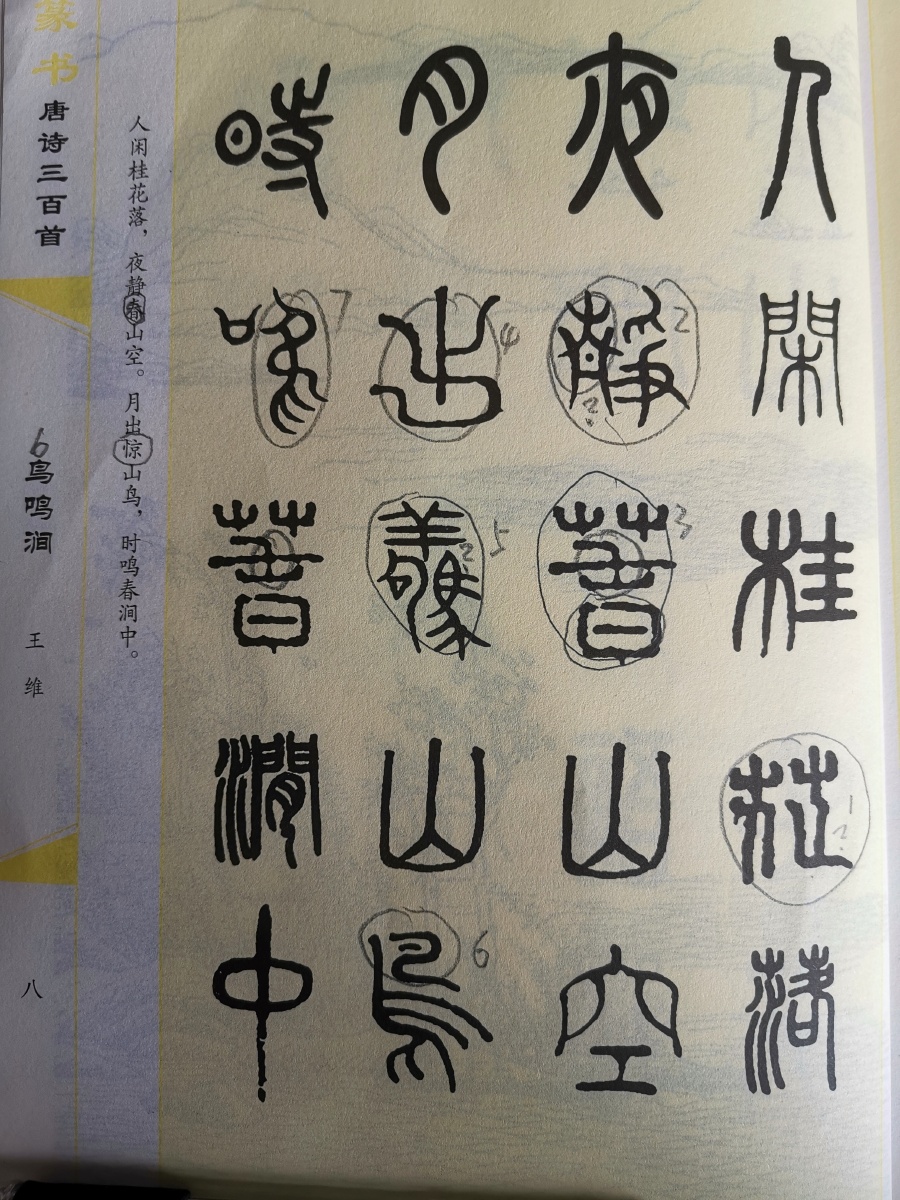 人閑桂花落
夜靜春山空
月出驚山鳥
時鳴春澗中
1?
2
?
3
4
5
2
6
7
人闲桂花落，夜静春山空。月出惊山鸟，时鸣春涧中。
篆书
唐诗三百首
6
鸟鸣涧
王维
八